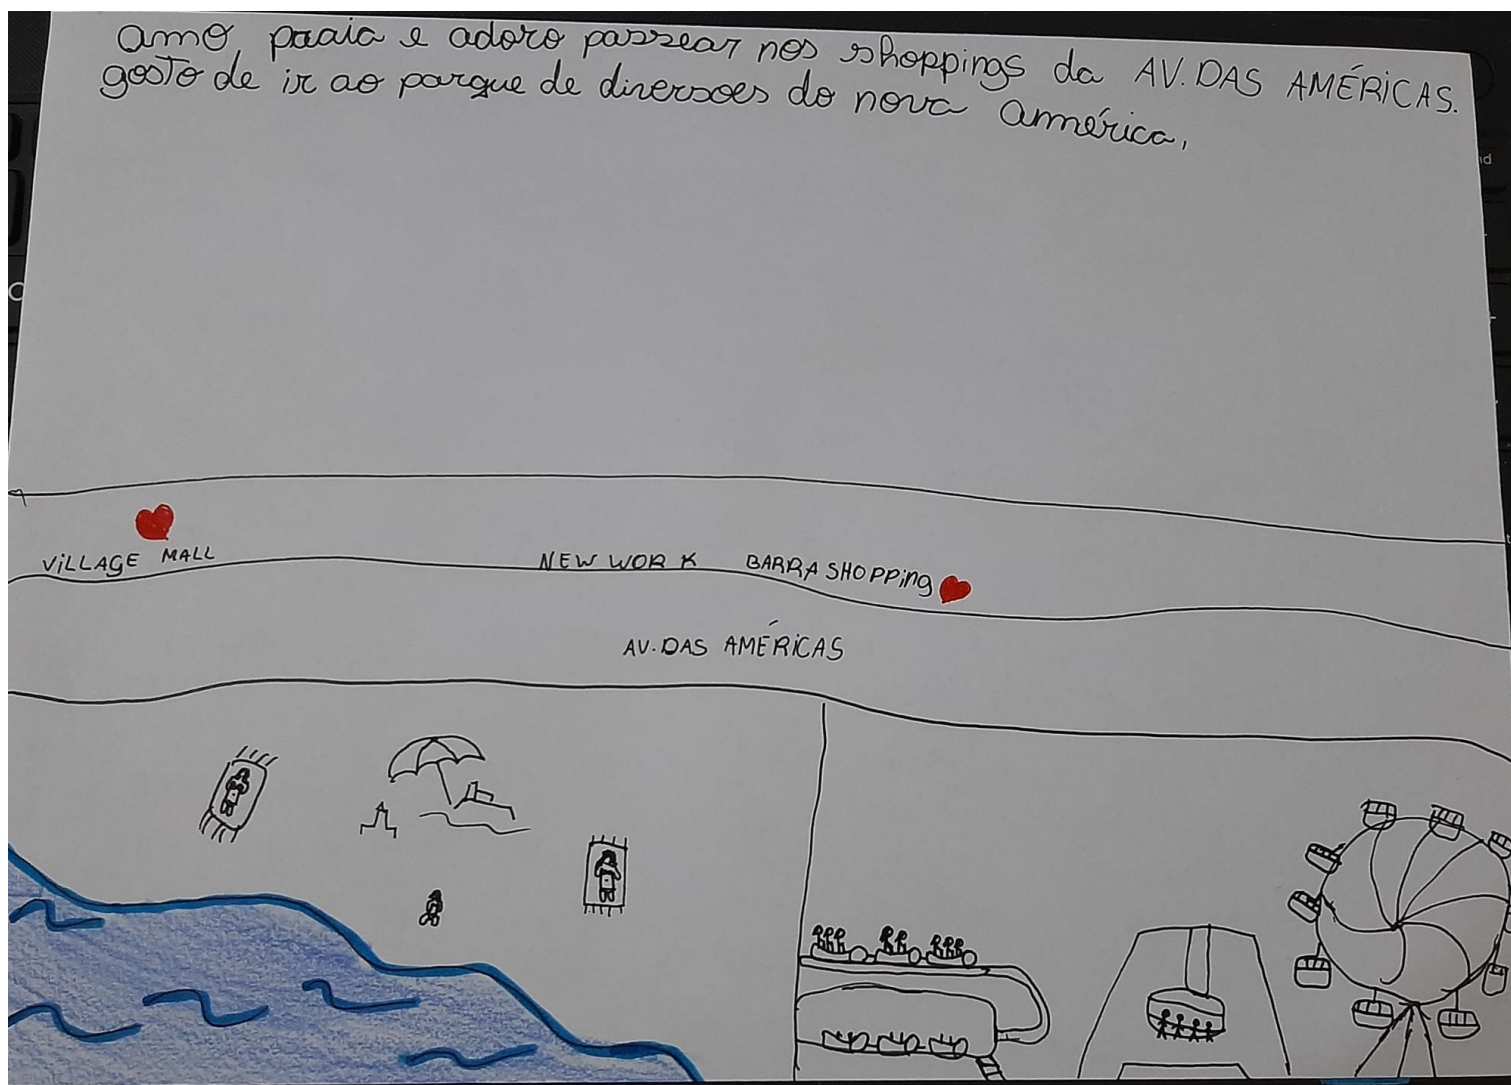 amo praia e adoro passear nos shoppings da AV. DAS AMÉRICAS.
gosto de ir ao parque de diversoes do nova América.
VILLAGE MALL
NEW WORK BARRA SHOPPing
AV. DAS AMÉRICAS